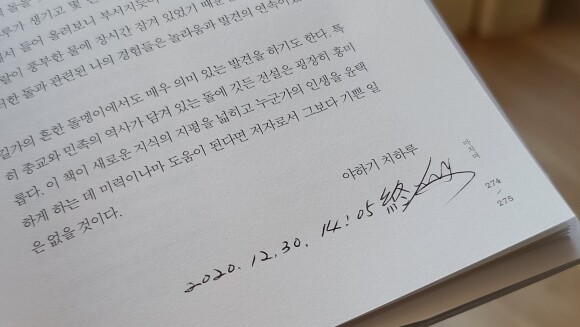 루가 생기고 몇
에서 들어 올려보니 부서지듯이
이 풍부한 물에 장시간 잠겨 있었기 때문
한 돌과 관련된 나의 경험들은 놀라움과 발견의 연속이었
길가의 흔한 돌멩이에서도 매우 의미 있는 발견을 하기도 한다. 특
히 종교와 민족의 역사가 담겨 있는 돌에 깃든 전설은 굉장히 흥미
롭다. 이 책이 새로운 지식의 지평을 넓히고 누군가의 인생을 윤택
하게 하는 데 미력이나마 도움이 된다면 저자로서 그보다 기쁜 일
은 없을 것이다.
야하기 치하루
마치며
274
-
275
2020. 12. 30. 14:05 終